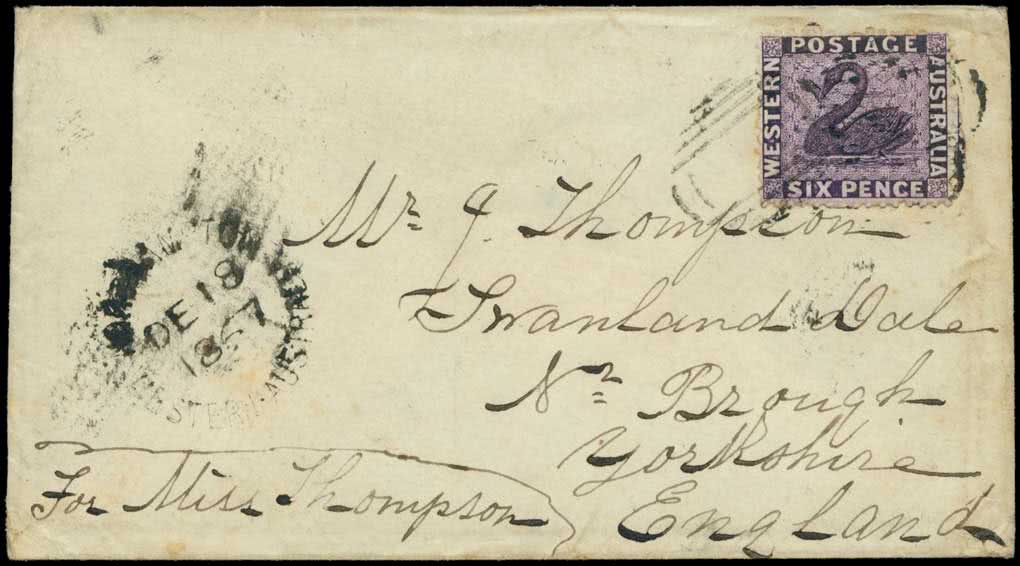 POSTAGE
WESTERN
AUSTRALIA
SIX PENCE
DE 18
1867
WESTERN AUSTRALIA
Mr. J. Thompson
Swanland Dale
Nr. Brough
Yorkshire
England
For Miss Thompson